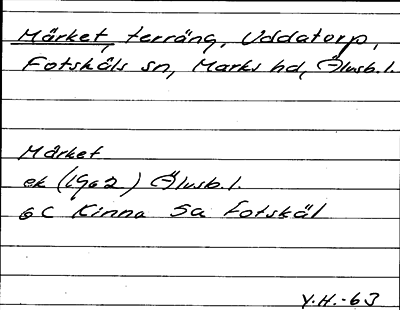 Märket, terräng, Uddatorp,
Fotskäls sn, Marks hd, Älvsb. l.
Märket
ek (1962) Älvsb. l.
6 C Kinna 5a Fotskäl
Y.H.-63